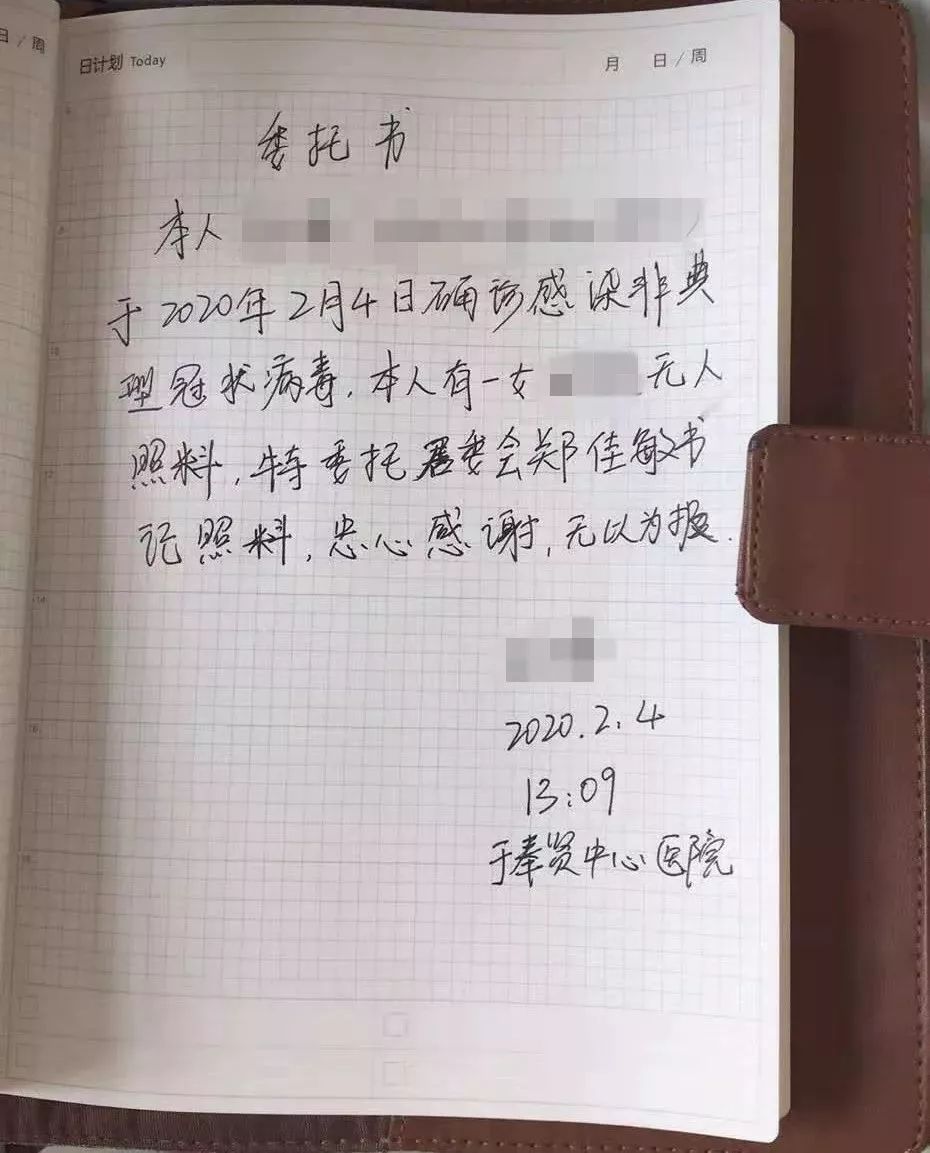 日/周
日计划 Today
月 日/周
委托书
本人
于2020年2月4日确诊感染非典
型冠状病毒,本人有一女 无人
照料,特委托居委会郑佳敏书
记照料,忠心感谢,无以为报.
2020.2.4
13:09
于奉贤中心医院